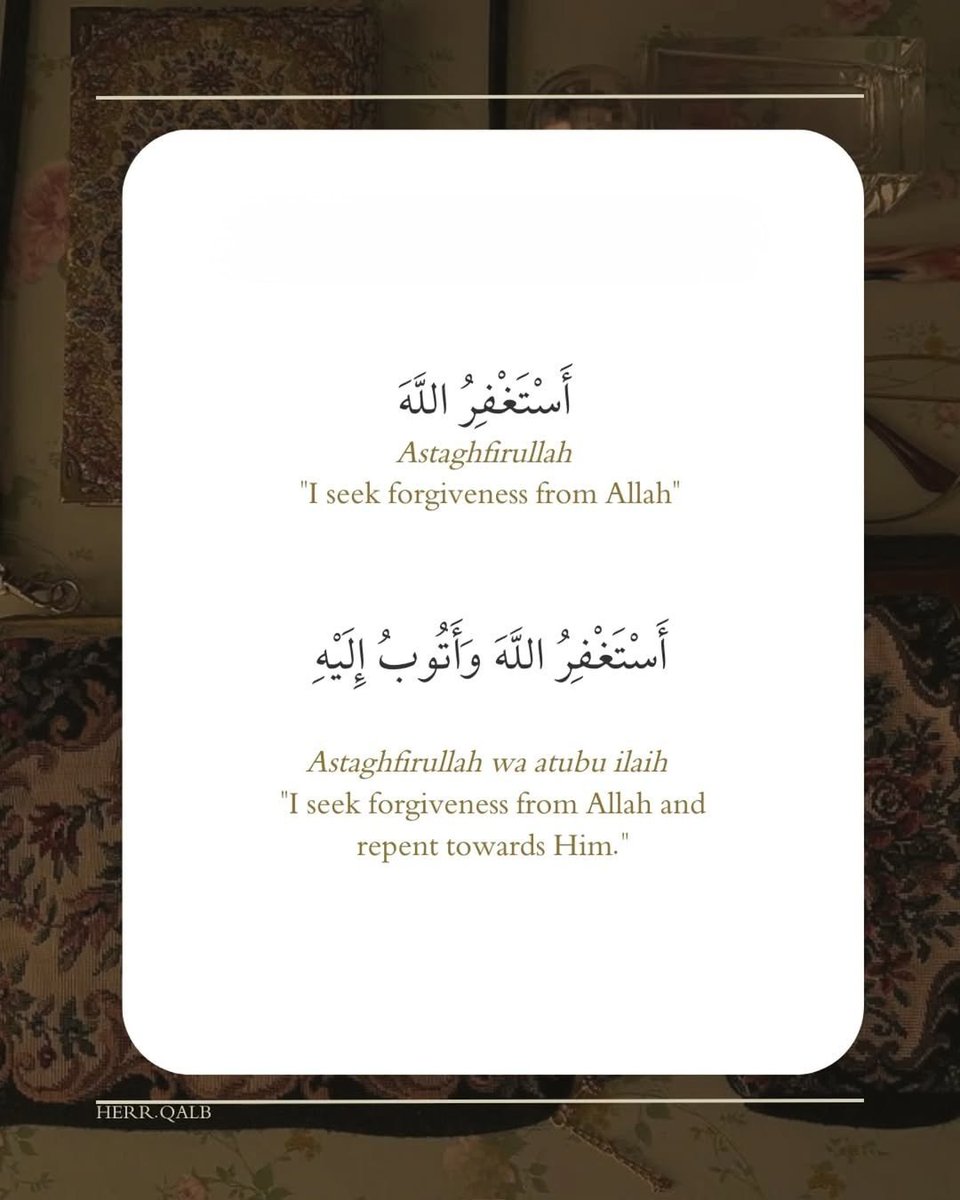 أَسْتَغْفِرُ اللَّهَ
Astaghfirullah
"I seek forgiveness from Allah"
أَسْتَغْفِرُ اللَّهَ وَأَتُوبُ إِلَيْهِ
Astaghfirullah wa atubu ilaih
"I seek forgiveness from Allah and
repent towards Him."
HERR.QALB